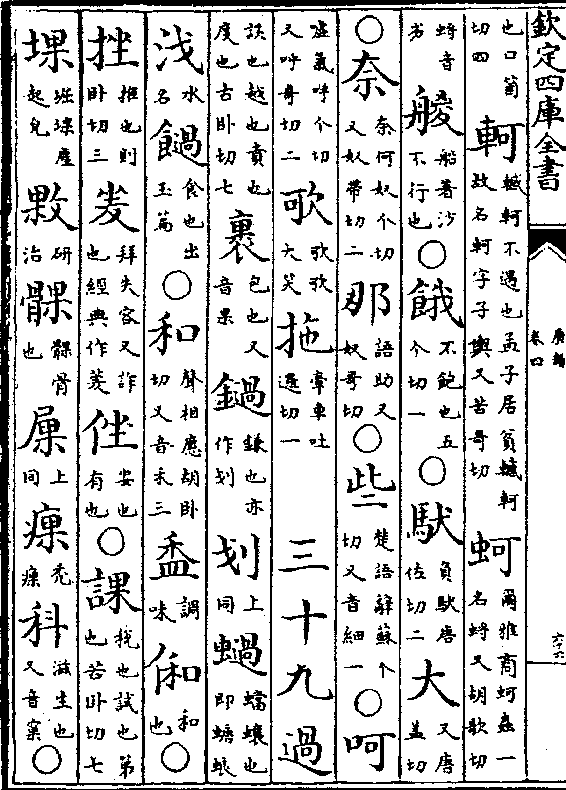 欽定四庫全書
廣韻
卷四
六十六
也口箇切四 軻 轗軻不遇也孟子居貧轗軻故名軻字子輿又苦哥切 蚵 爾雅商蚵蟲一名蛶又胡歌切
蛶音劣 艐 船著沙不行也 ○ 餓 不飽也五个切一 ○ 馱 負馱唐佐切二 大 又唐蓋切
○ 奈 奈何奴个切又奴帶切二 那 語助又奴哥切 ○ 些 楚語辭蘇个切又音細一 ○ 呵
噓氣呼个切又呼哥切二 㰤 㰤㰤大笑 拖 牽車吐邏切一 三十九過
誤也越也責也度也古卧切七 裹 包也又音果 鐹 鎌也亦作划 划 上同 即螗蜋 蟷蠰也
水名 食也出玉篇 ○ 和 聲相應胡卧切又音禾三 盉 調味 俰 和也 ○
挫 摧也則卧切三 夎 拜失容又詐也經典作蓌 侳 安也有也 ○ 課 稅也試也第也苦卧切七
堁 堀堁塵起皃 敤 研治 髁 髁骨也 上同 禿 科 滋生也又音窠 ○